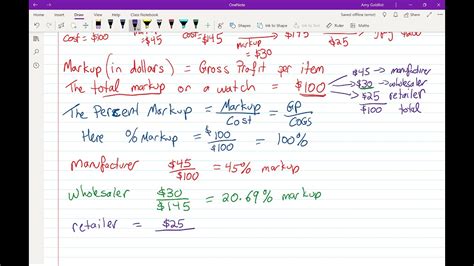 OneNote
Amy Goldlist
File Home Insert Draw View Help
Saved offline (error)
Share
Ink to Shape
Ink to Math
cost = $100 +$45 Cost = markup $25
= $30
Markup (in dollars) = Gross Profit per item
The total markup on a watch = $100
$45 → manufacturer
$30 → wholesaler
$25 → retailer
$100 total
The Percent Markup = Markup / Cost = GP / COGS
Here % Markup = $100 / $100 = 100%
manufacturer $45 / $100 = 45% markup
wholesaler $30 / $145 = 20.69% markup
retailer = $25